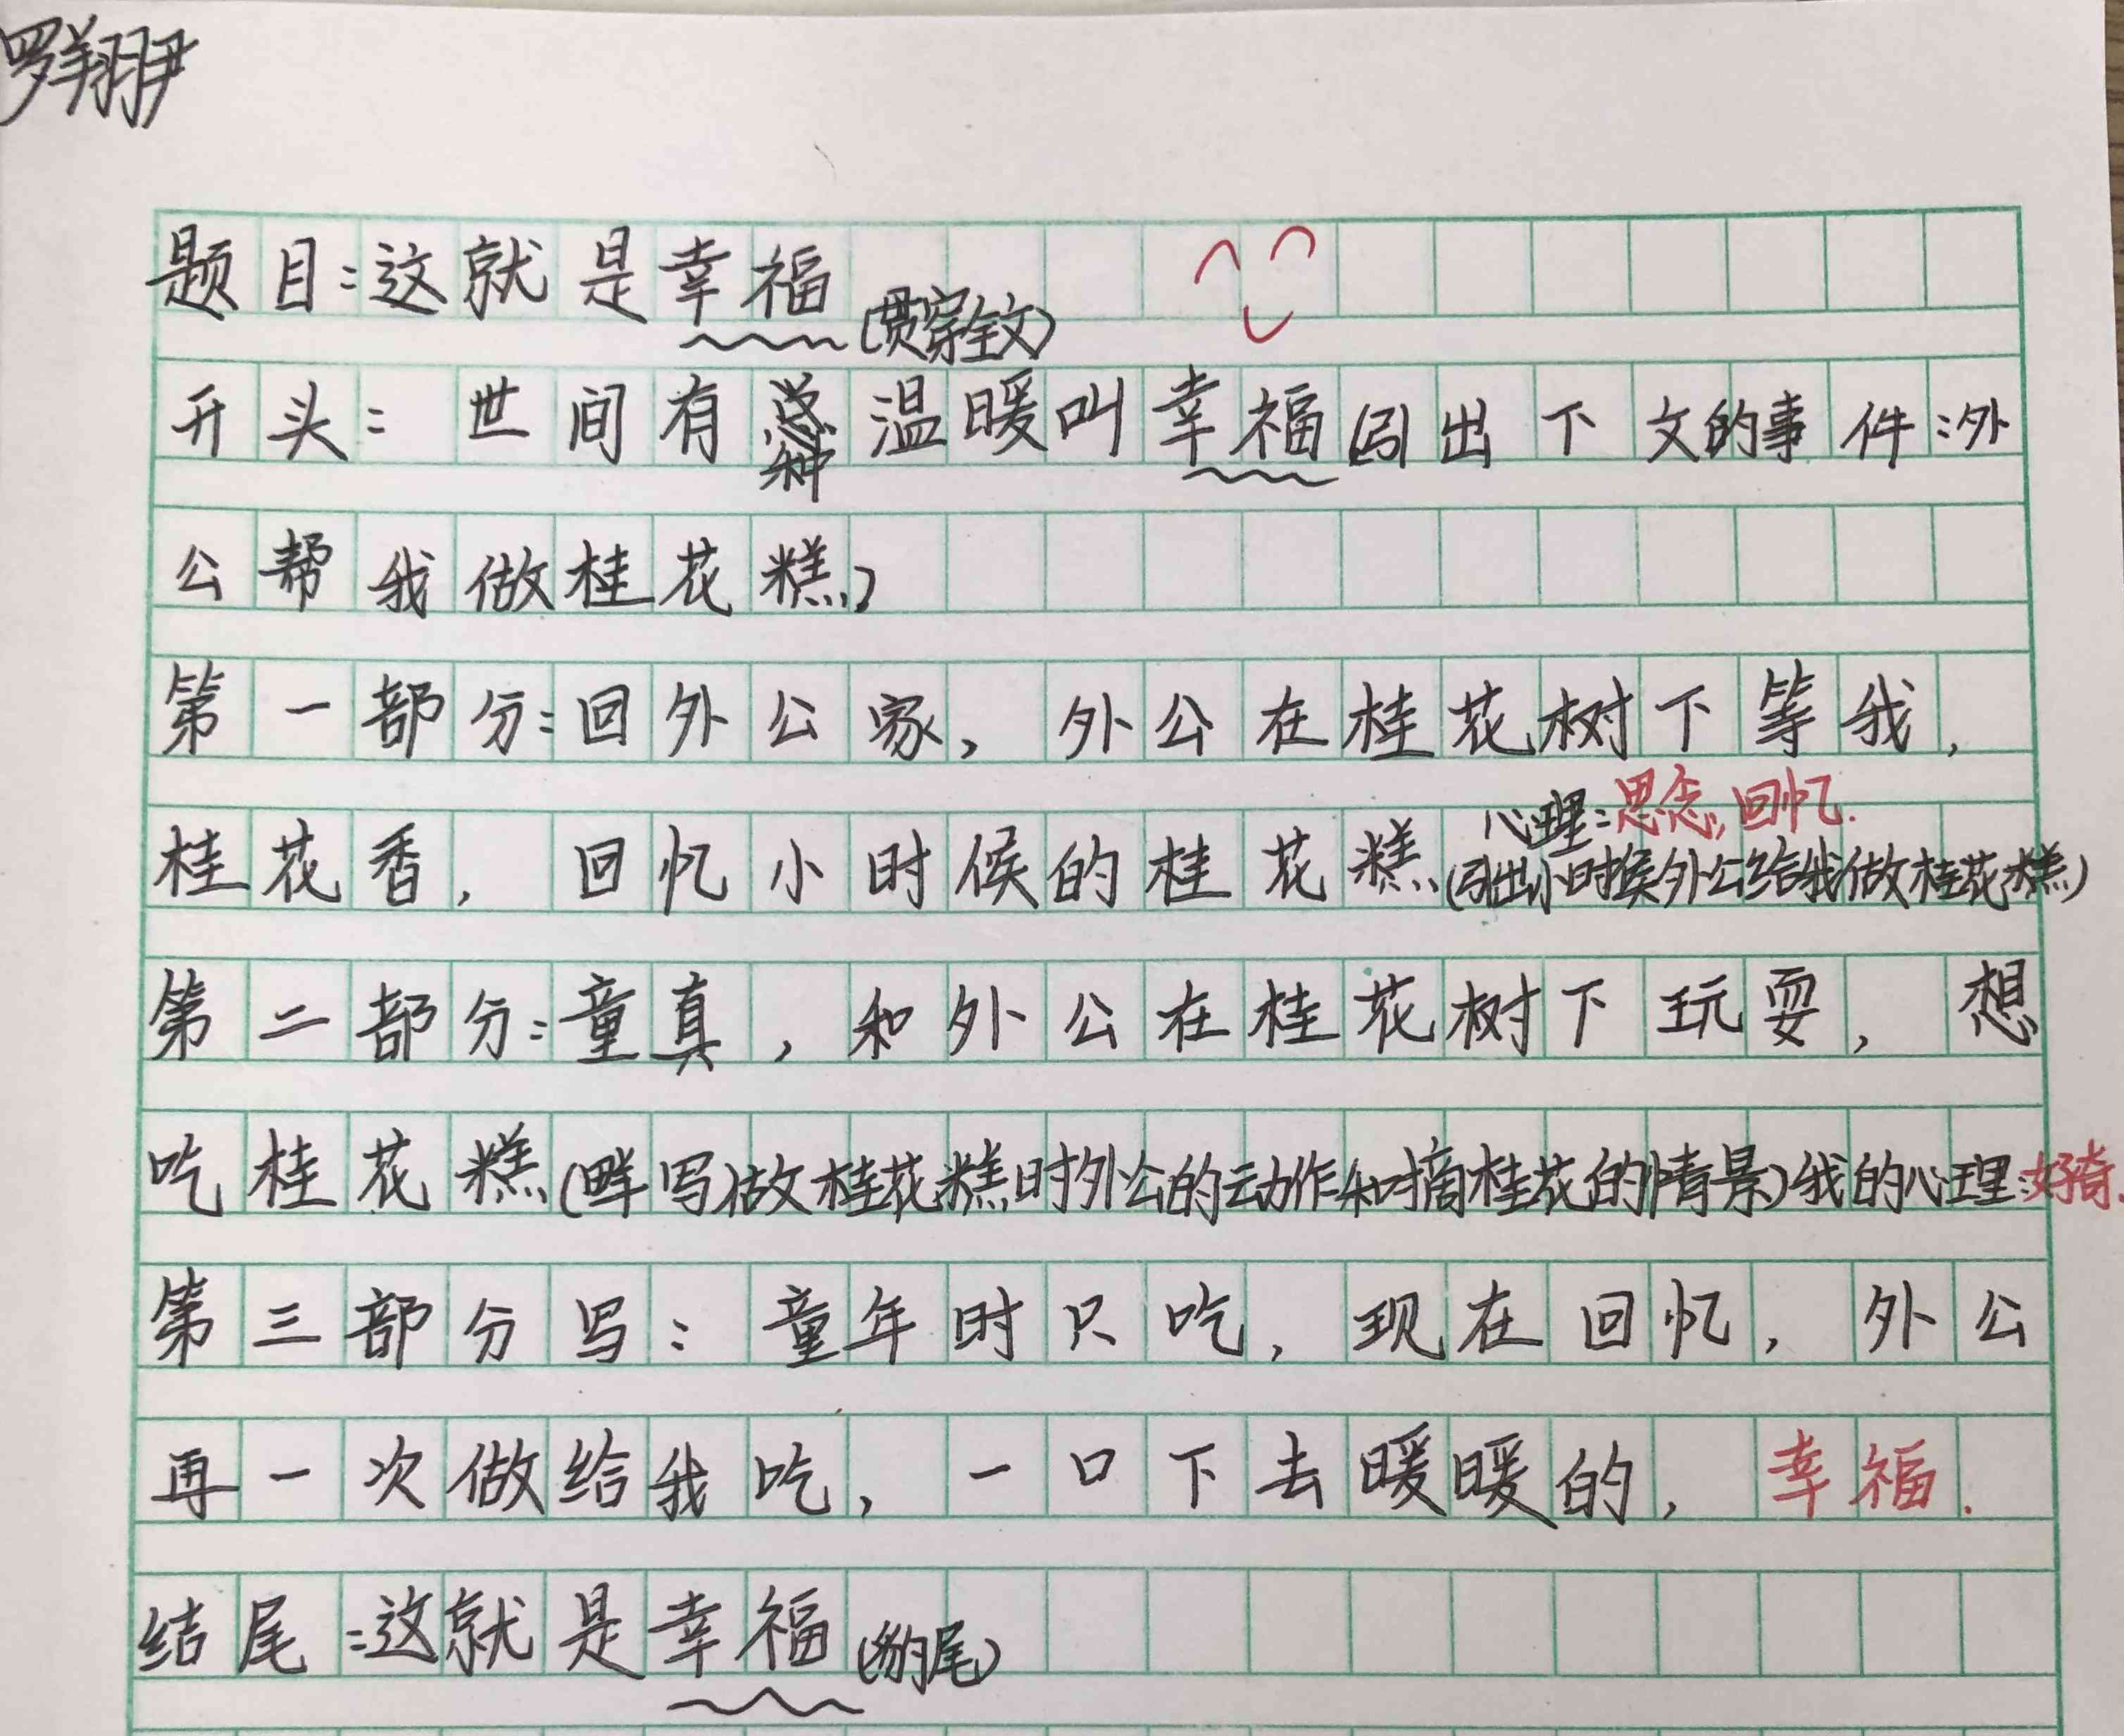 罗翔尹
题目:这就是幸福
(贯穿全文)
开头: 世间有种温暖叫幸福(引出下文的事件:外
公帮我做桂花糕)
第一部分:回外公家, 外公在桂花树下等我,
心理:思念,回忆.
桂花香, 回忆小时候的桂花糕(引出小时候外公给我做桂花糕)
第二部分:童真, 和外公在桂花树下玩耍, 想
吃桂花糕(详写)做桂花糕时外公的动作和摘桂花的情景)我的心理:好奇.
第三部分写: 童年时只吃, 现在回忆, 外公
再一次做给我吃, 一口下去暖暖的, 幸福.
结尾:这就是幸福
(豹尾)